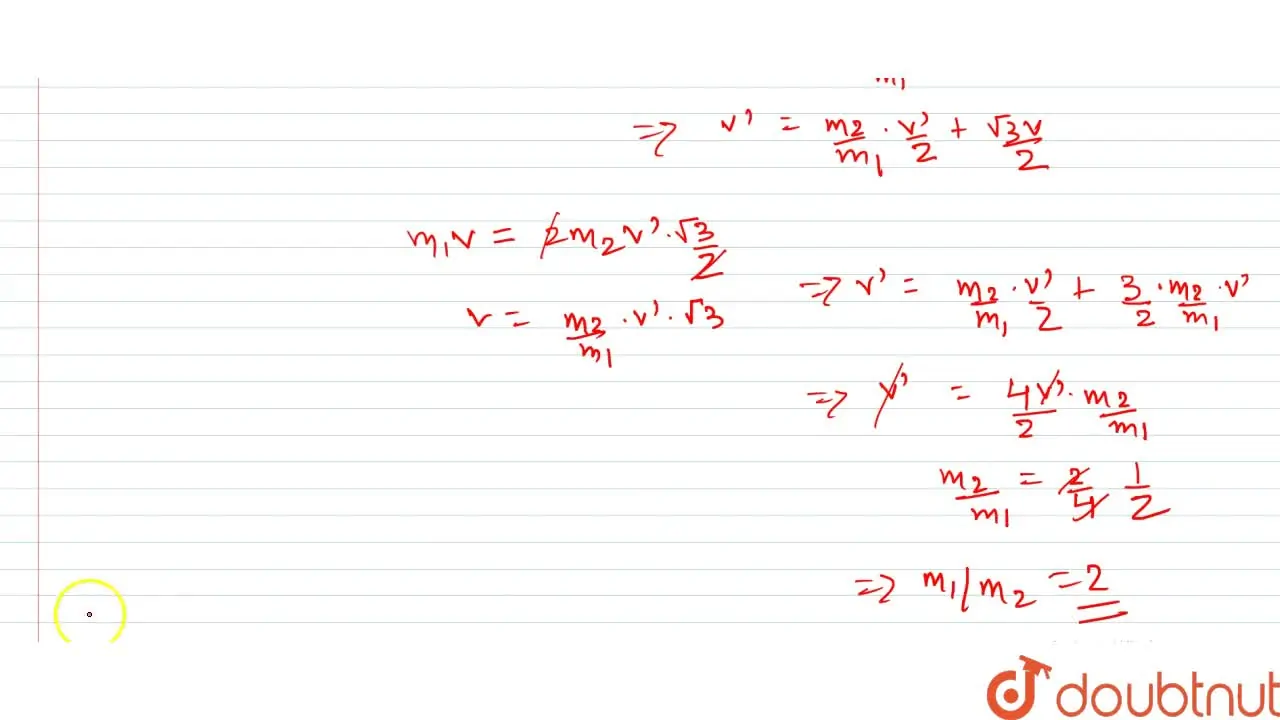 m₁
=> v' = m₂/m₁ · v'/2 + √3v/2
m₁v = 2m₂v' · √3/2
v = m₂/m₁ · v' · √3
=> v' = m₂/m₁ · v'/2 + 3/2 · m₂/m₁ · v'
=> v' = 4v'/2 · m₂/m₁
m₂/m₁ = 2/4 1/2
=> m₁/m₂ = 2
doubtnut